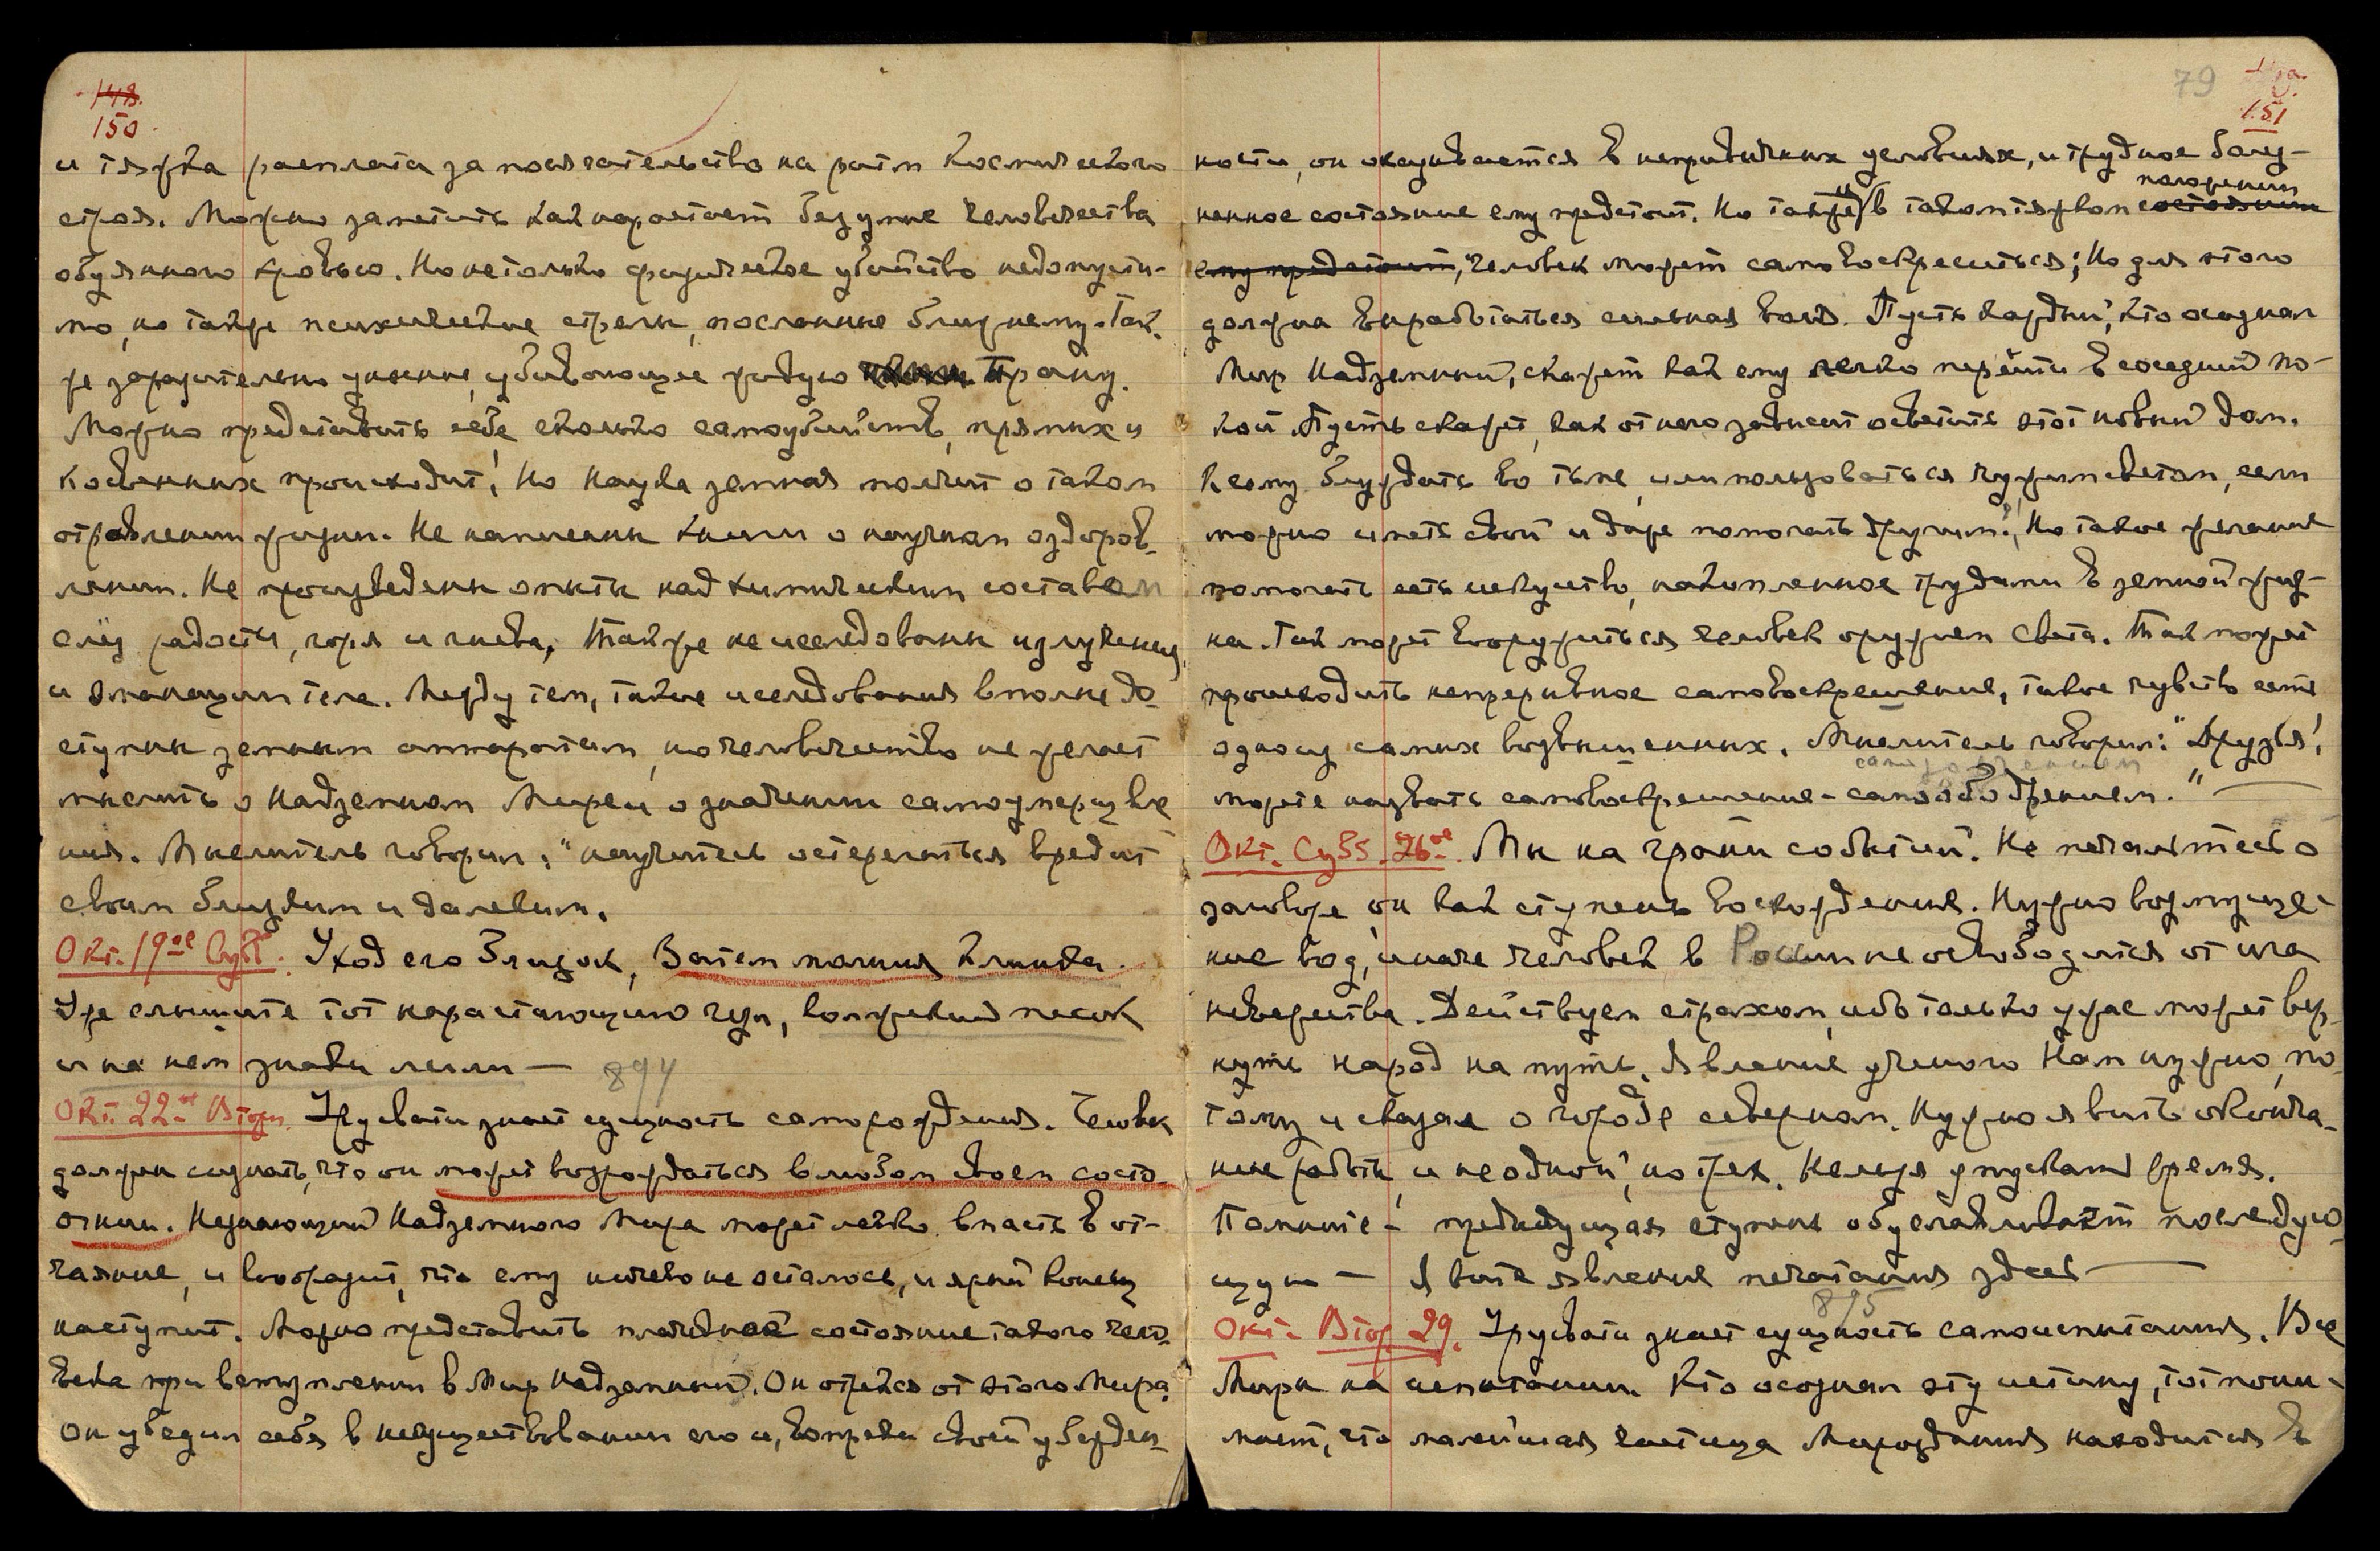 148.
150.
и тяжка расплата за посягательство на ритм космического
строя. Можно заметить как нарастает безумие человечества
обуянного кровью. Но не только физическое убийство недопусти-
мо, но также психические стрелы, посланные ближнему. Так-
же заразительно уныние, убивающее живую Прану.
Можно представить себе сколько самоубийств, прямых и
косвенных происходит! Но наука земная молчит о таком
отравлении жизни. Не написаны книги о научном оздоров-
лении. Не произведены опыты над химическим составом
слёз радости, горя и гнева, также не исследованы излучения
и эманации тела. Между тем, такие исследования вполне до-
ступны земным аппаратам, но человечество не желает
мыслить о Надземном Мире и о значении самоумерщвле
ния. Мыслитель говорил: "научитесь остерегаться вредить
своим близким и далеким.
Окт. 19ое Субб. Уход его близок, Затем молния клинка.
Уже слышите тот нарастающий гул, волжский песок
и на нем знаки легли — 894
Окт. 22ое Вторн. Урусвати знает сущность саморождения. Человек
должен сознать, что он может возрождаться в любом своем состо-
янии. Незнающий Надземного Мира может легко впасть в от-
чаяние, и вообразит, что ему ничего не осталось, и ярый конец
наступит. Можно представить плачевное состояние такого чело-
века при вступлении в Мир Надземный. Он отрекся от этого Мира,
Он убедил себя в несуществовании его и, вопреки своей убежден-
79
151
ности, он оказывается в непривычных условиях, и трудное болез-
положении
ненное состояние ему предстоит. Но также и в таком тяжком состоянии
ему предстоит, человек может самовоскреситься; Но для этого
должна выработаться сильная воля. Пусть каждый, кто осознал
Мир Надземный, скажет как ему легко перейти в соседний по-
кой. Пусть скажет, как от него зависит осветить этот новый дом.
К чему блуждать во тьме, или пользоваться чужим светом, если
можно иметь свой и даже помогать другим! Но такое желание
помогать есть искусство, накопленное трудами в земной жиз-
ни. Так может вооружиться человек оружием Света. Так может
происходить непрерывное самовоскрешение, такое чувство есть
одно из самых возвышенных. Мыслитель говорил: "Друзья!
можете назвать самовоскрешение - самоободрением." —
Окт. Субб. 26ое. Мы на грани событий. Не печальтесь о
заговоре, он как ступень восхождения. Нужно возмуще-
ние вод, иначе человек в России не освободится от ига
невежества. Действуем страхом, ибо только ужас может вер-
нуть народ на путь. Явление ученого Нам нужно, по-
тому и сказал о городе северном. Нужно явить оконча-
ние работы, и не одной, но трех. Нельзя упускать время.
Помните - предыдущая ступень обуславливает последую-
щую — Явите явление печатания здесь —
895
Окт. Втор 29. Урусвати знает сущность самоиспытания. Все
Миры на испытании. Кто осознал эту истину, тот пони-
мает, что малейшая частица Мироздания находится в